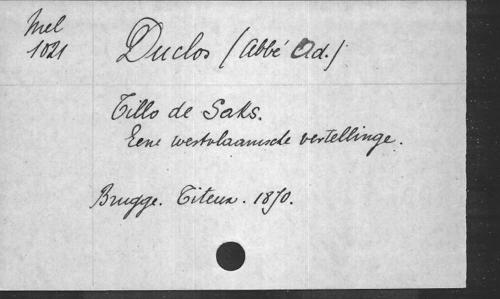 Mel
1021
Duclos (Abbé Ad.)
Tillo de Saks.
Eene westvlaamsche vertellinge.
Brugge. Titeux. 1870.